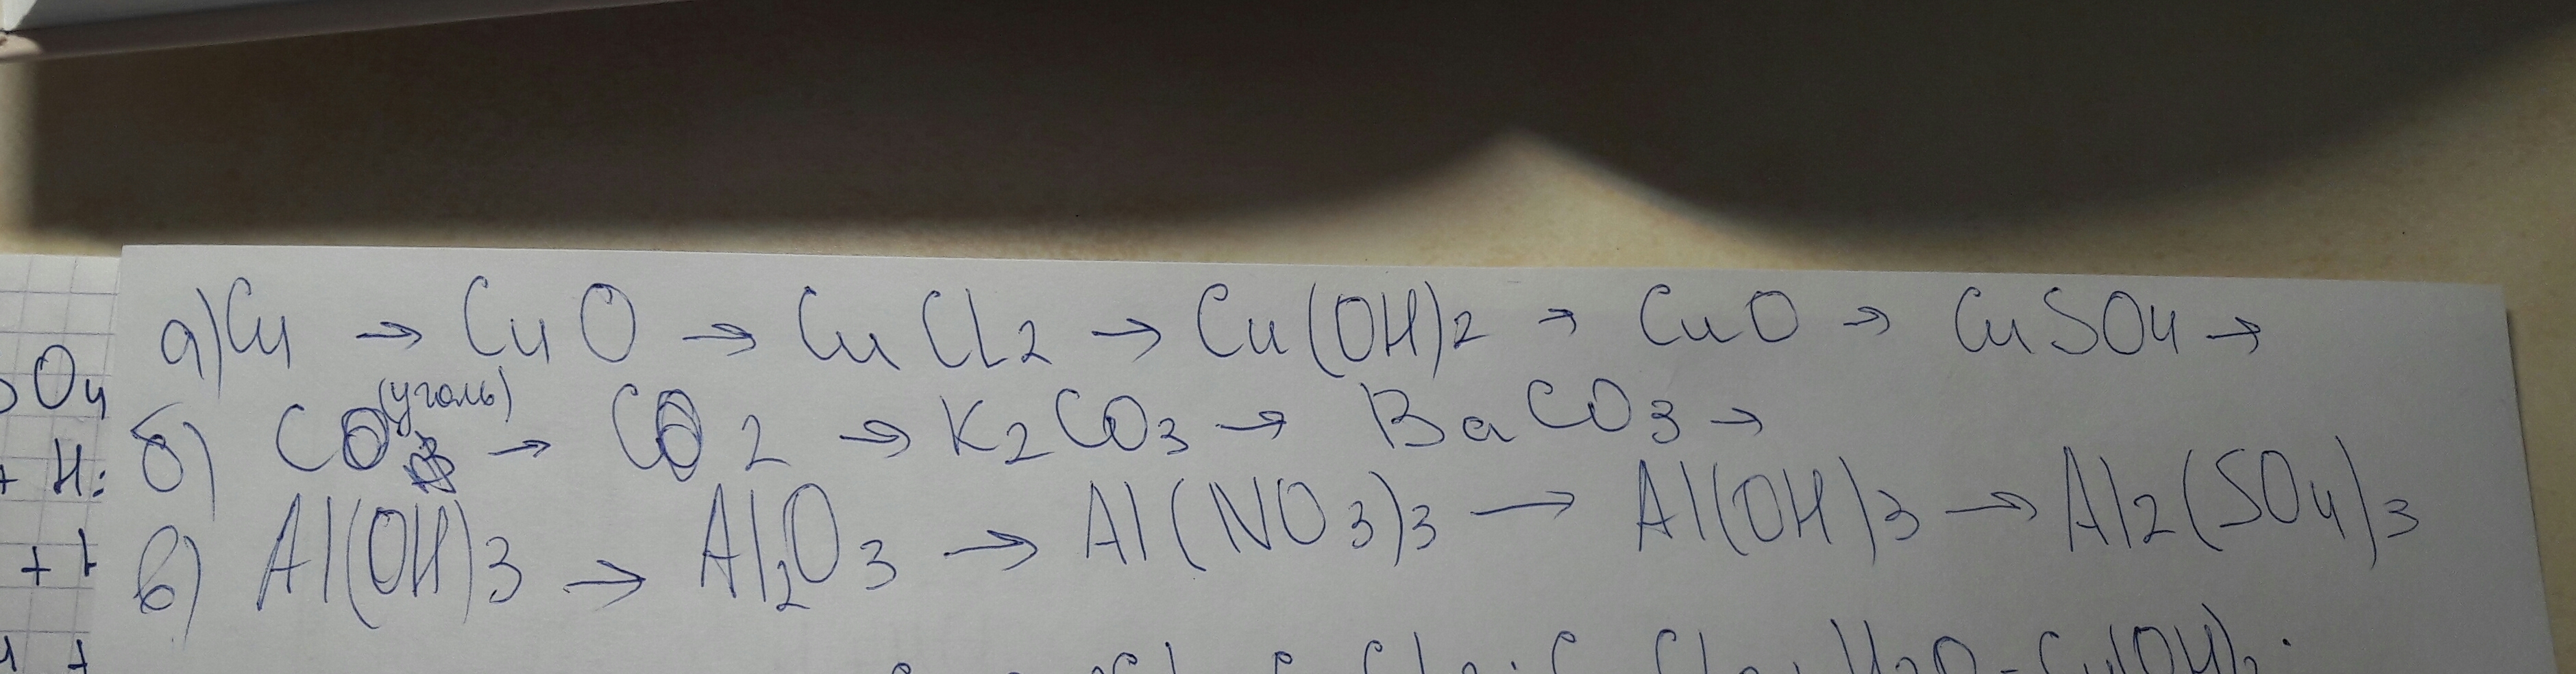 а) Cu → CuO → CuCl2 → Cu(OH)2 → CuO → CuSO4 →
б) CO (уголь) → CO2 → K2CO3 → BaCO3 →
в) Al(OH)3 → Al2O3 → Al(NO3)3 → Al(OH)3 → Al2(SO4)3
O4
+ H:
+
+